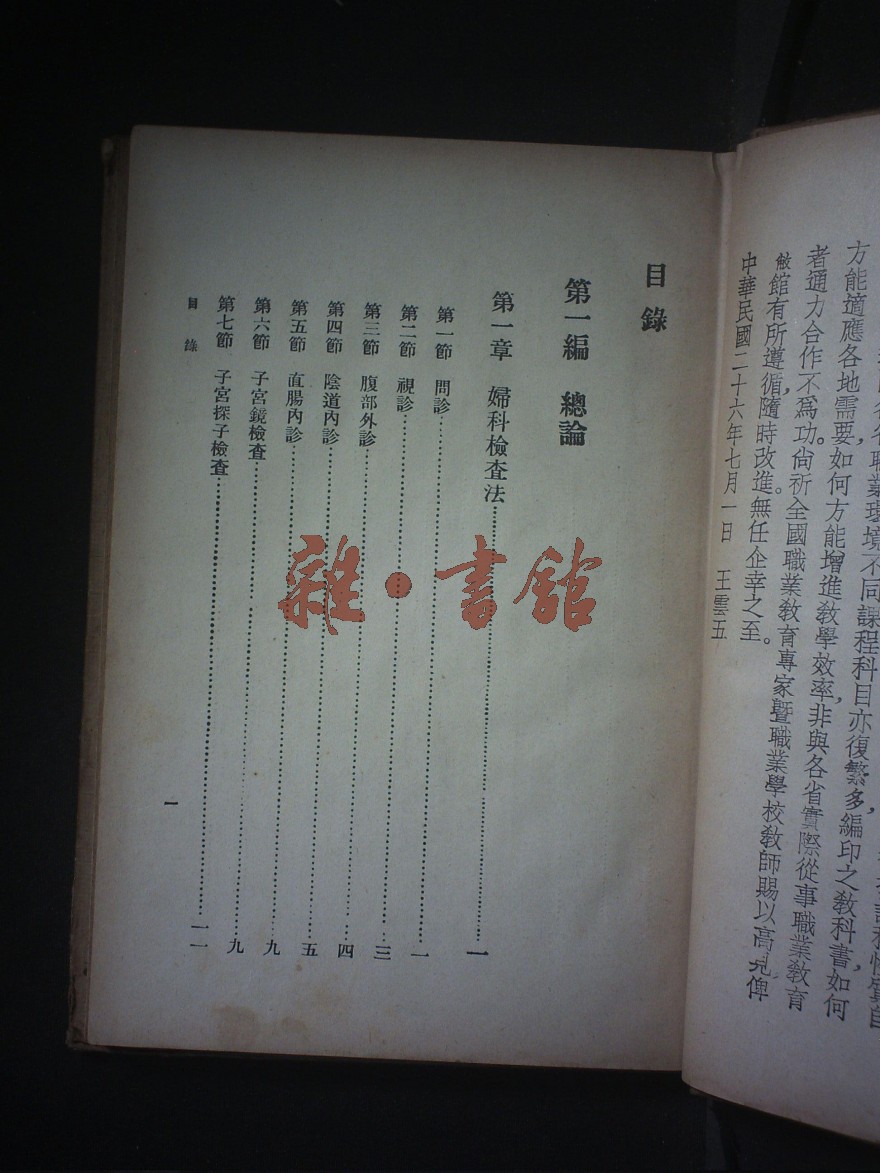 方能適應各地需要，如何方能增進教學效率，非與各省實際從事職業教育
者通力合作不爲功。尙祈全國職業教育專家暨職業學校教師賜以高見，俾
敝館有所遵循，隨時改進，無任企幸之至。
中華民國二十六年七月一日　王雲五
目錄
第一編　總論
第一章　婦科檢査法……一
第一節　問診……一
第二節　視診……三
第三節　腹部外診……四
第四節　陰道內診……五
第五節　直腸內診……九
第六節　子宮鏡檢査……九
第七節　子宮探子檢査……一一
目錄
一
雜·書館